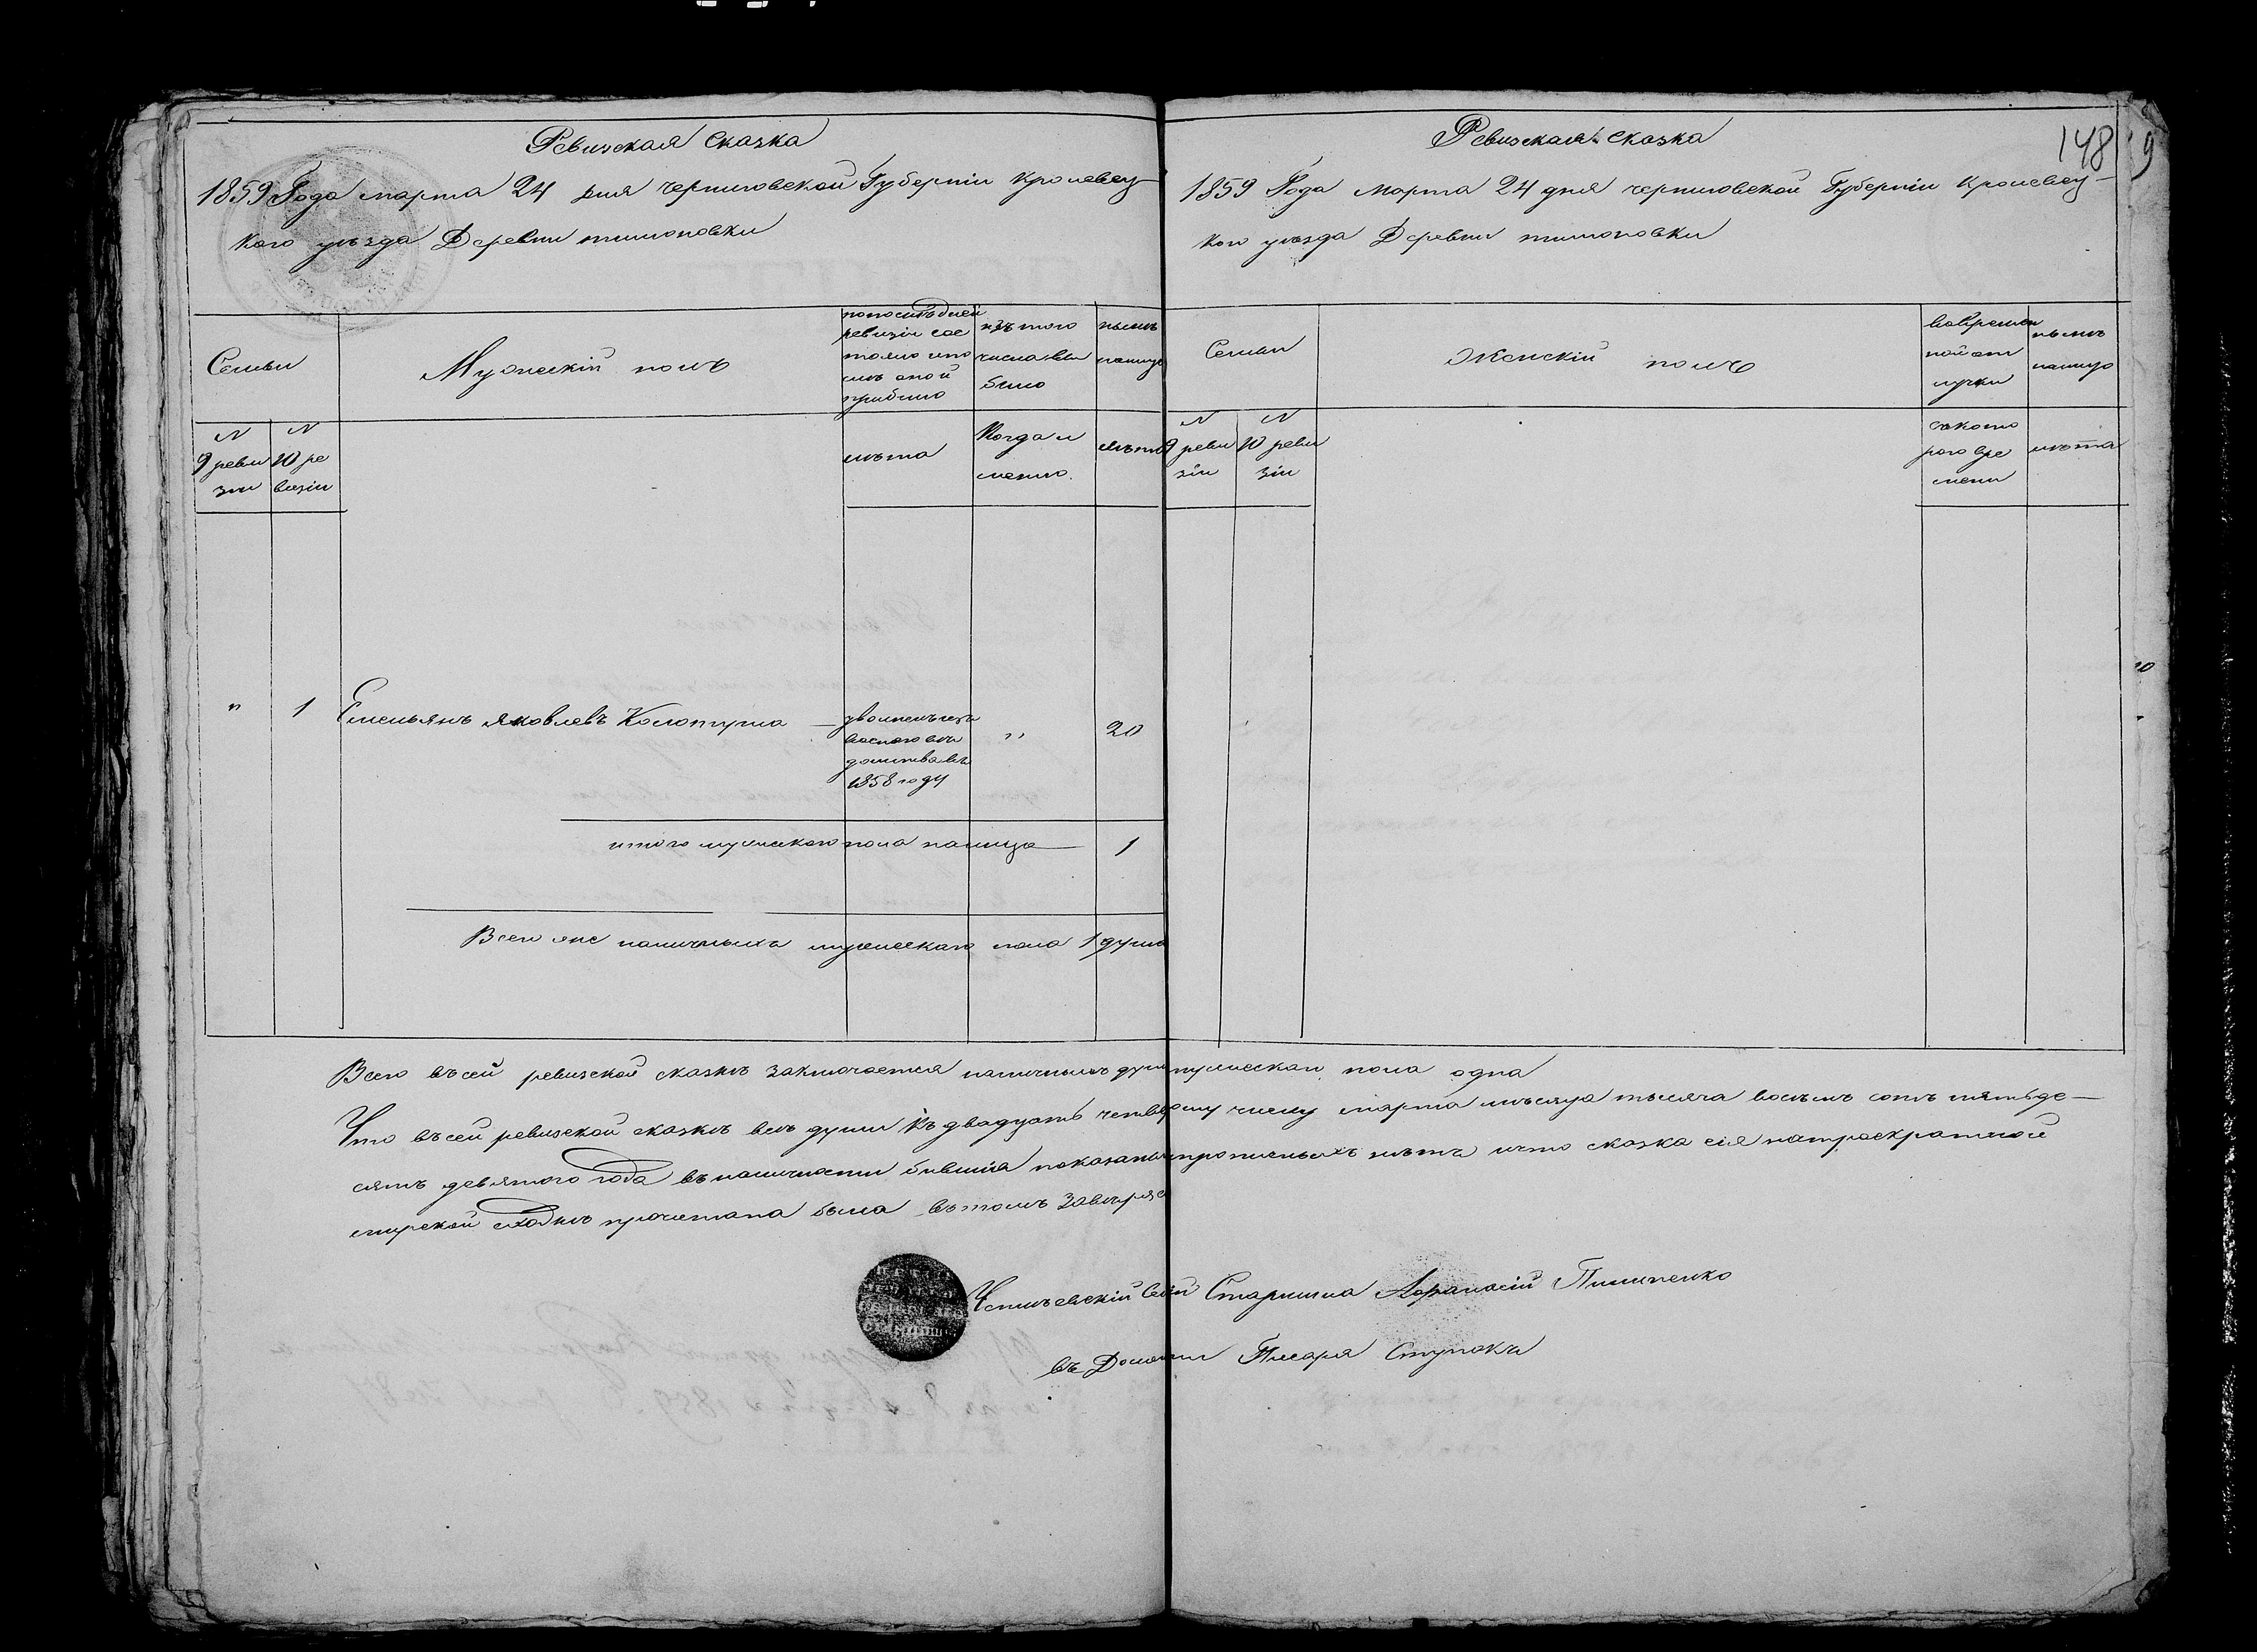 148
9
Ревизская Сказка
1859 Года марта 24 дня черниговской Губерніи Кролевец-
кого уѣзда Деревни тимоновки
Семьи
Мужескій полъ
попослѣдней
ревизіи сос
тояло ипо
слѣ оной
прибыло
изъ того
числа вы
было
нынѣ
налицо
N
9 реви
зіи
N
10 ре
визіи
лѣта
Когда и
менно.
лѣта
"
1
Емельянъ Яковлевъ Колотуша —
1858 году
"
20
итого мужескаго пола налицо —
1
Всего же наличныхъ мужескаго пола 1 душа
Ревизская Сказка
1859 Года марта 24 дня черниговской Губерніи Кролевец-
кого уѣзда Деревни тимоновки
Семьи
Женскій полъ
вовремен
ной от
лучки
нынѣ
налицо
N
9 реви
зіи
N
10 реви
зіи
съкото
раго вре
мени
лѣта
Всего въсей ревизской сказкѣ заключается наличныхъ душъ мужескаго пола одна
Что въсей ревизской сказкѣ всѣ души къ двадцать четвертому числу марта мѣсяца тысяча восемъ сотъ пятьде-
сятъ девятого года въ наличности бывшіа показаны прописныхъ нѣтъ ичто сказка сія натроекратной
мирской сходкѣ прочитана была вътомъ завѣряю
Старшина Афанасій Пилипенко
въ Должн Писаря Ступакъ